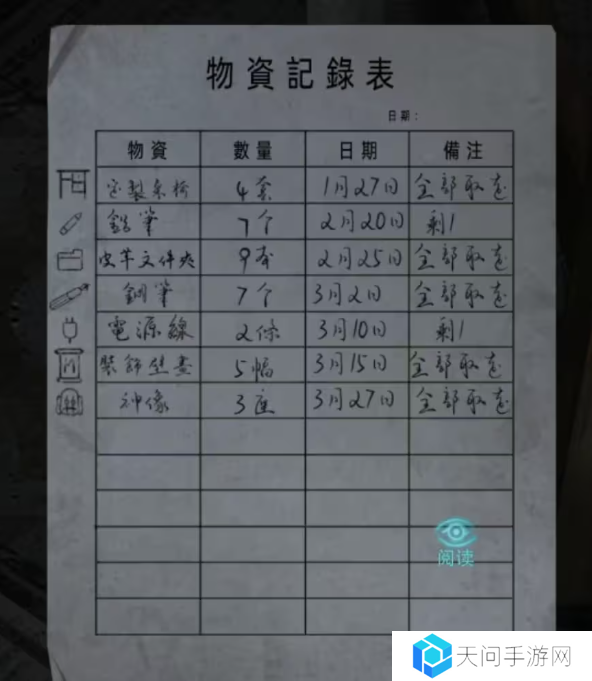 物資記錄表
日期：
物資 數量 日期 備注
定製桌椅 4套 1月27日 全部取走
鉛筆 7个 2月20日 剩1
皮革文件夾 9本 2月25日 全部取走
鋼筆 7个 3月2日 全部取走
電源線 2條 3月10日 剩1
裝飾壁畫 5幅 3月15日 全部取走
神像 3座 3月27日 全部取走
阅读
天问手游网